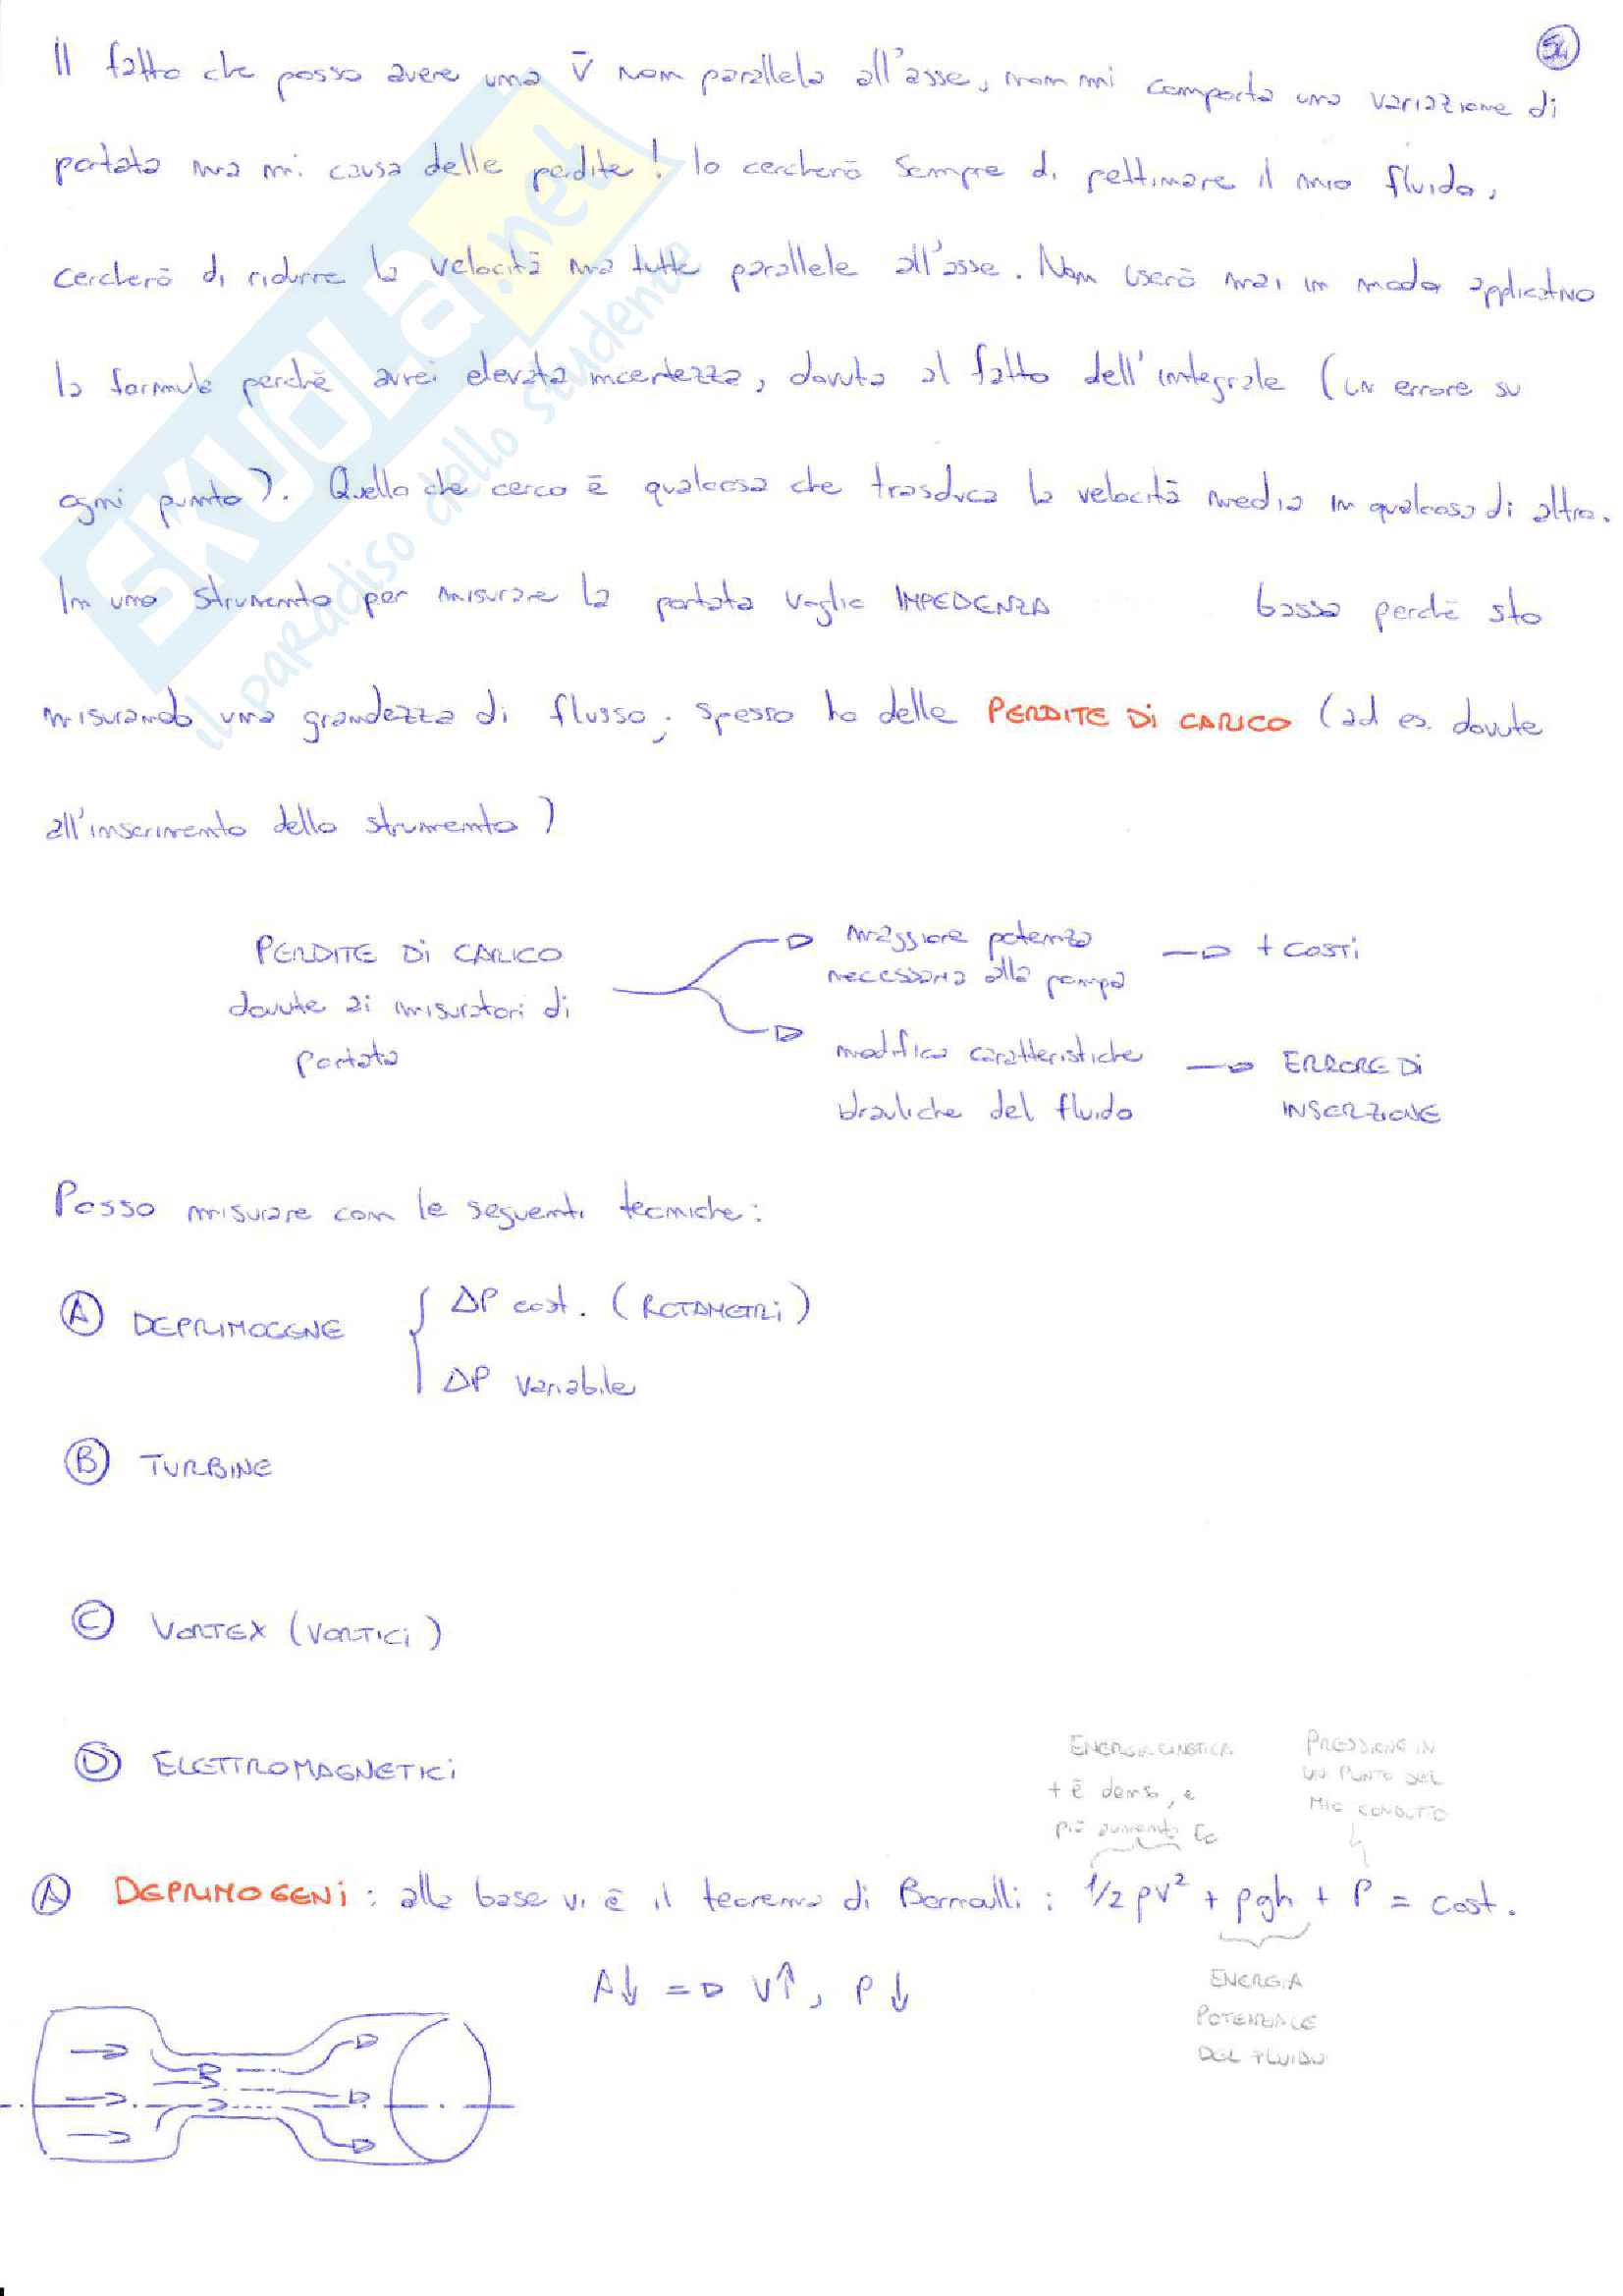 54
Il fatto che posso avere una v̄ non parallela all'asse, non mi comporta una variazione di
portata ma mi causa delle perdite! Io cercherò sempre di pettinare il mio fluido,
cercherò di ridurre la velocità ma tutte parallele all'asse. Non userò mai in modo applicativo
la formula perchè avrei elevata incertezza, dovuta al fatto dell'integrale (un errore su
ogni punto). Quello che cerco è qualcosa che trasduca la velocità media in qualcosa di altro.
In uno strumento per misurare la portata voglio IMPEDENZA bassa perchè sto
misurando una grandezza di flusso; spesso ho delle PERDITE DI CARICO (ad es. dovute
all'inserimento dello strumento)
PERDITE DI CARICO
dovute ai misuratori di
portata
maggiore potenza
necessaria alla pompa
+ COSTI
modifica caratteristiche
idrauliche del fluido
ERRORE DI
INSERZIONE
Posso misurare con le seguenti tecniche:
A DEPRIMOGENE
ΔP cost. (ROTAMETRI)
ΔP variabile
B TURBINE
C VORTEX (VORTICI)
D ELETTROMAGNETICI
ENERGIA CINETICA
+ è denso, e
più aumenta Ec
PRESSIONE IN
UN PUNTO DEL
MIO CONDOTTO
A DEPRIMOGENI: alla base vi è il teorema di Bernoulli: 1/2 ρv² + ρgh + P = cost.
A↓ => V↑, P↓
ENERGIA
POTENZIALE
DEL FLUIDO
SKUOLA.net
il paradiso dello studente